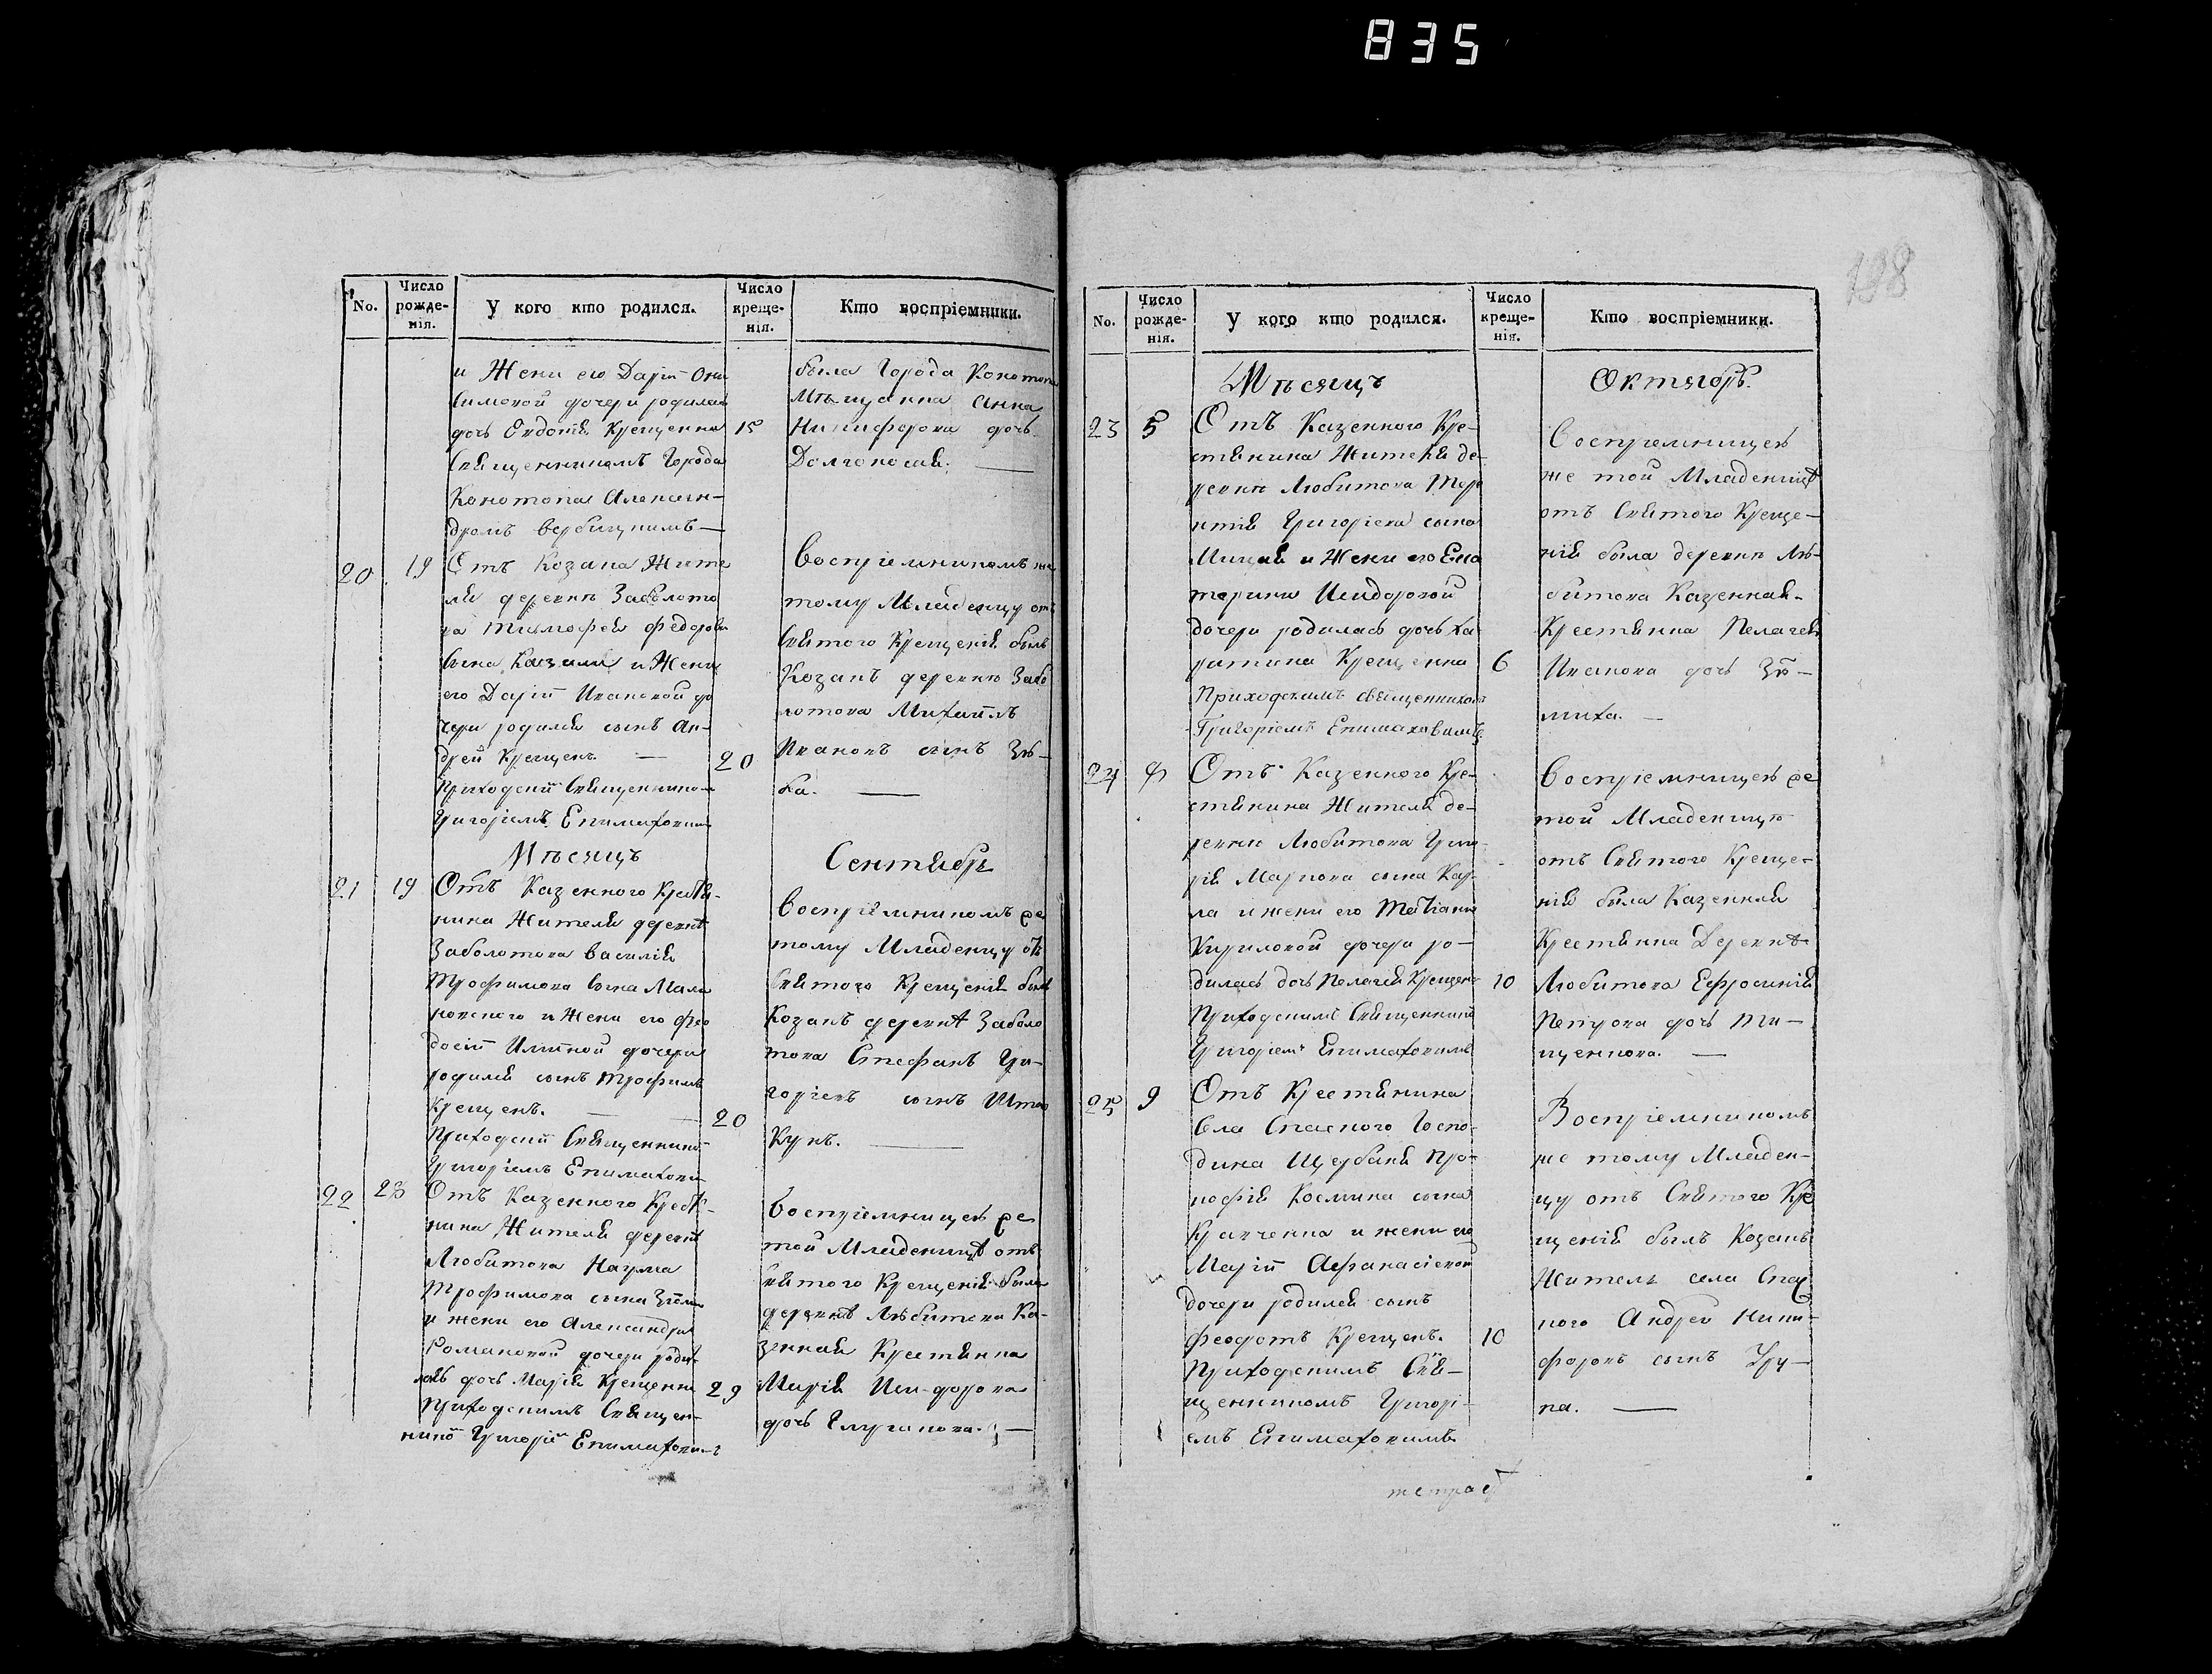 835
198
No.
Число рожде-нія.
У кого кто родился.
Число креще-нія.
Кто воспріемники.
и Жени его Даріи Они
симовой дочери родилась
дочь Евдокія Крещенна 15
Священникомъ Города
Конотопа Алексан-
дромъ Вербицкимъ —
была Города Конотопа
Мѣщанка Анна
Никифорова дочь
Долгополая. —
20 19 Отъ Козака Жите
ля деревнѣ Заболото
ва Тимофея Федорова
сына и Жени
его Даріи Ивановой до
чери родился сынъ Ан-
дрей Крещенъ. — 20
Приходскимъ Священнико-
Григоріемъ Епимаховим
Воспріемникомъ же
тому Младенцу отъ
Святого Крещенія былъ
Козакъ деревнѣ Забо
лотова Михаилъ
Ивановъ сынъ Зю-
ба. —
Мѣсяцъ
Сентябрь
21 19 Отъ Казенного Крестя-
нина Жителя деревнѣ
Заболотова Василія
Трофимова сына Мали
новского и Жени его Фео
досіи Иліиной дочери
родился сынъ Трофимъ
Крещенъ. — 20
Приходскій Священникъ
Григоріемъ Епимахови
Воспріемникомъ же
тому Младенцу отъ
Святого Крещенія былъ
Козакъ деревнѣ Заболо
това Стефанъ Гри-
горіевъ сынъ
22 28 Отъ Казенного Крестя-
нина Жителя деревнѣ
Любитова Наума
Трофимова сына
и жени его Александри
Романовой дочери роди-
лась дочь Марія Крещенна 29
Приходскимъ Священ-
Григорій Епимахови
Воспріемницею же
той Младеницѣ отъ
Святого Крещенія была
деревнѣ Любитова Ка-
зенная Крестянка
Марія Исидорова
дочь —
No.
Число рожде-нія.
У кого кто родился.
Число креще-нія.
Кто воспріемники.
Мѣсяцъ
Октябрь.
23 5 Отъ Казенного Кре-
стянина Жителя де-
ревнѣ Любитова Тере
нтія Григоріева сына
и Жени его Ека
терини Исидоровой
дочери родилась дочь Ха-
ритина Крещенна 6
Приходскимъ священникомъ
Григоріемъ Епимаховимъ
Воспріемницею
же той Младеницѣ
отъ Святого Креще-
нія была деревнѣ Лю-
битова Казенная
Крестянка Пелагея
Иванова дочь
24 Отъ Казенного Кре-
стянина Жителя де-
ревнѣ Любитова Григо
рія Маркова сына Кар-
ла и жени его Татіани
Кириловой дочери ро-
дилась дочь Пелагія Крещен 10
Приходскимъ Священникомъ
Григоріемъ Епимаховимъ
Воспріемницею же
той Младеницѣ
отъ Святого Креще-
нія была Казенная
Крестянка Деревнѣ
Любитова Ефросинія
Петрова дочь Ти-
щенкова. —
25 9 Отъ Крестянина
Села Спаского Госпо-
дина Щербани Про-
кофія Космина сына
Кравченка и жени его
Маріи Афанасіевой
дочери родился сынъ
Феодотъ Крещенъ. 10
Приходскимъ Свя-
щенникомъ Григорі-
емъ Епимаховимъ
Воспріемникомъ
же тому Младен-
цу отъ Святого Кре
щенія былъ Козакъ
Житель села Спас
кого Андрей Ники-
форовъ сынъ